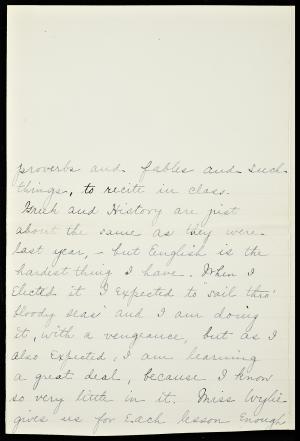 proverbs and fables and such
things, to recite in class.
Greek and History are just
about the same as they were
last year, - but English is the
hardest thing I have. When I
elected it I expected to "sail thro'
bloody seas" and I am doing
it, with a vengeance, but as I
also expected, I am learning
a great deal, because I know
so very little in it. Miss Wylie
gives us for each lesson enough